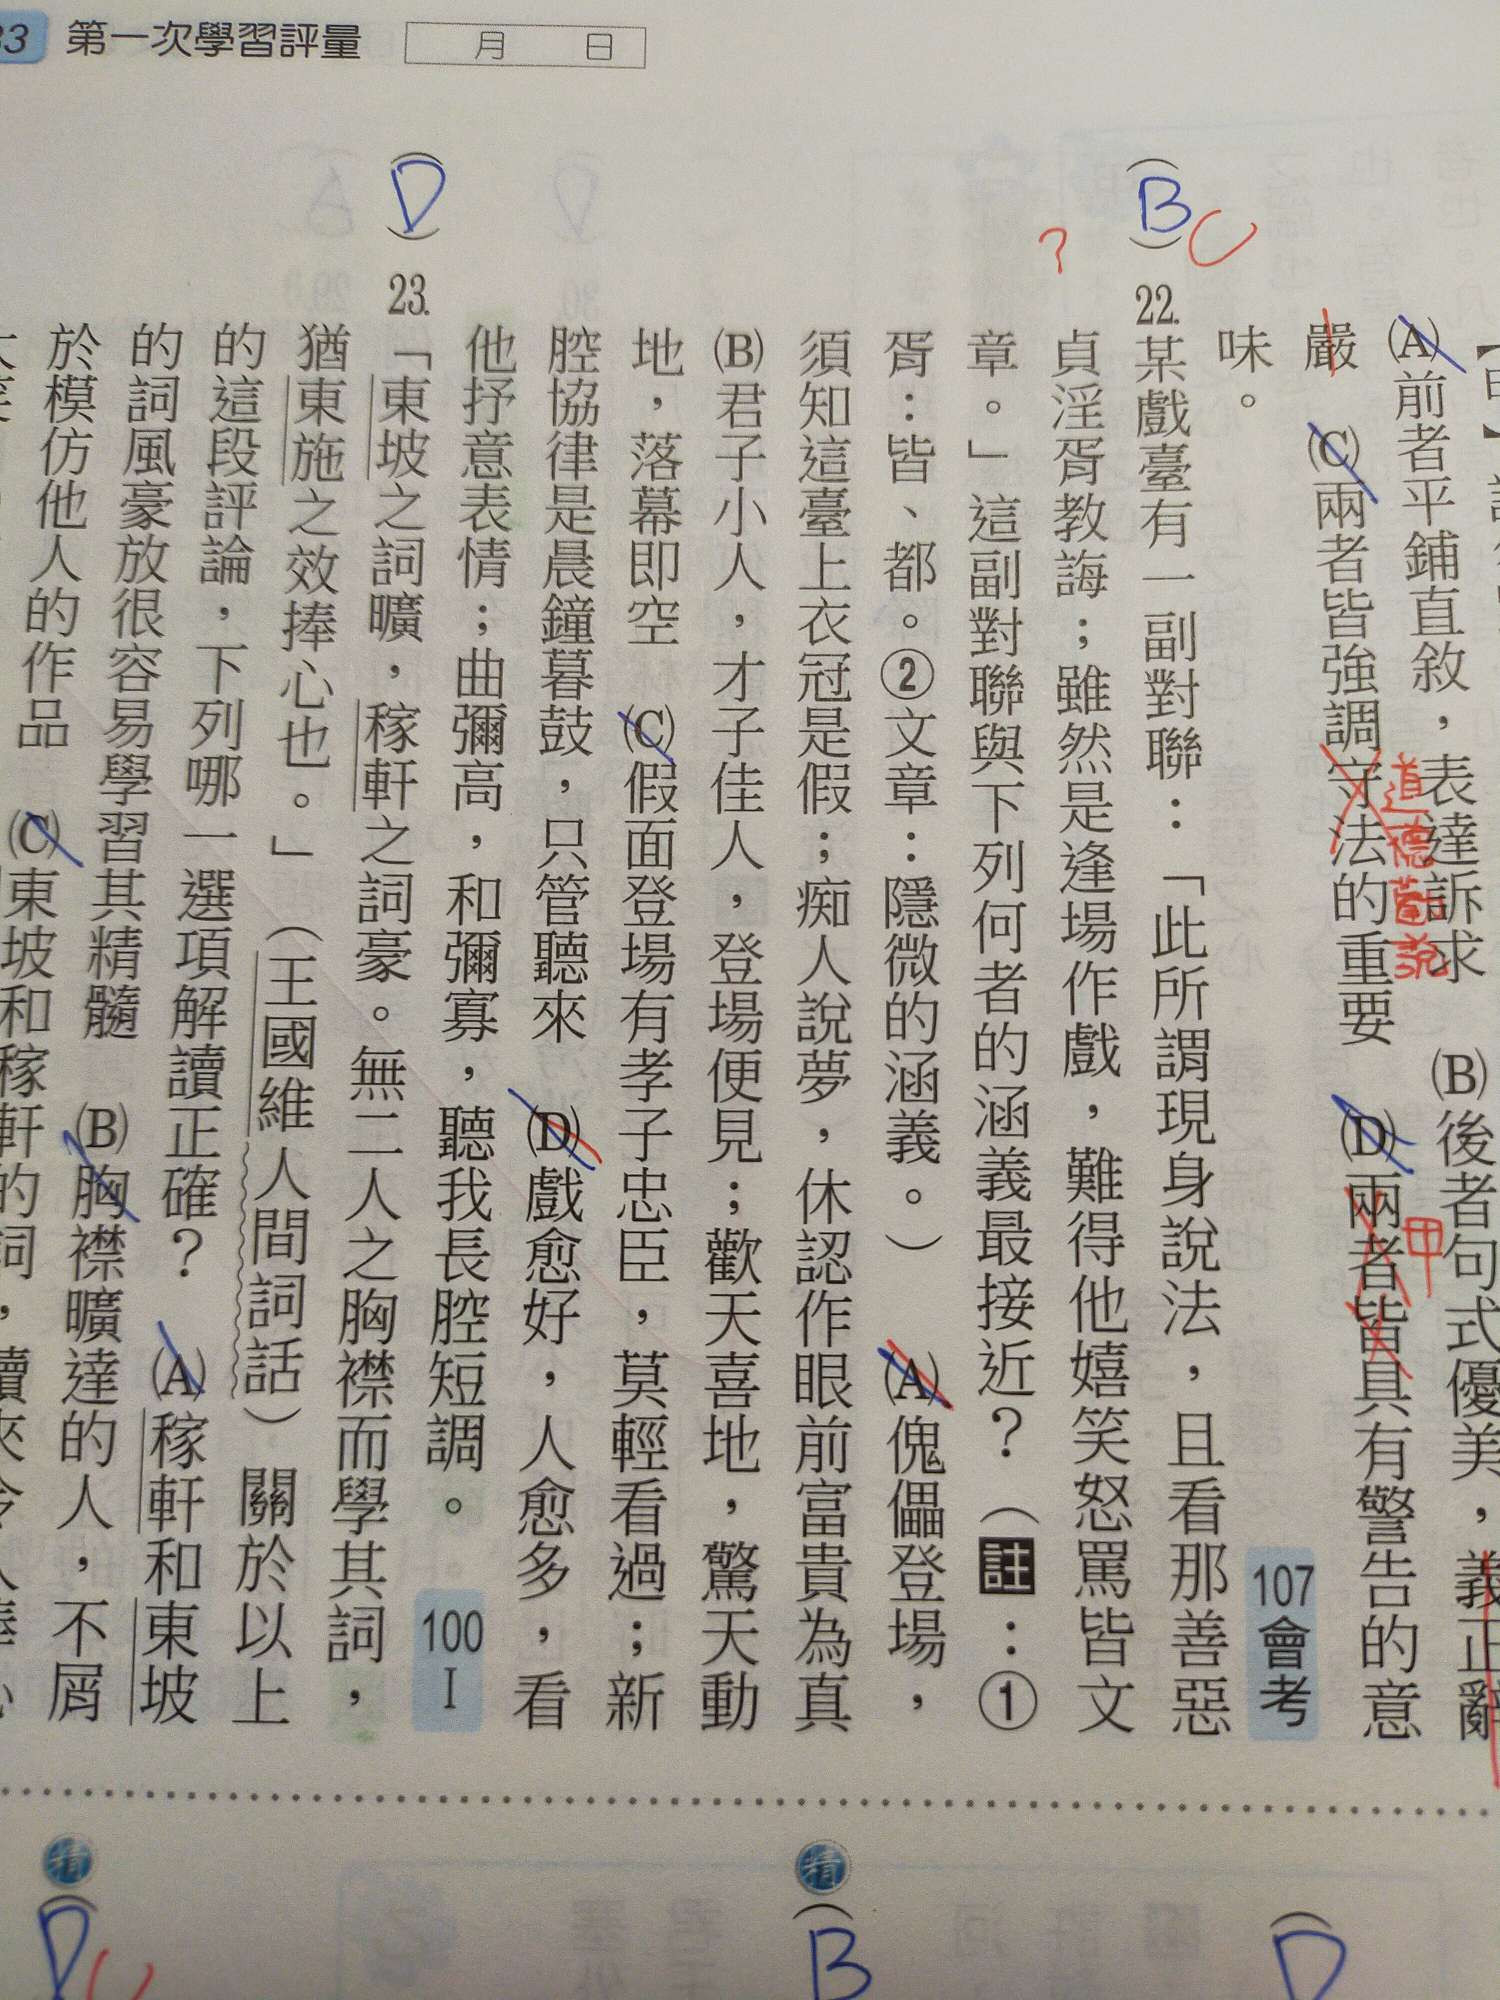 33 第一次學習評量 月 日
(A)前者平鋪直敘，表達訴求 (B)後者句式優美，義正辭
嚴 (C)兩者皆強調守法的重要 (D)兩者皆具有警告的意
道德勸說
甲
味。 107會考
(B) C
22.某戲臺有一副對聯：「此所謂現身說法，且看那善惡
?
貞淫胥教誨；雖然是逢場作戲，難得他嬉笑怒罵皆文
章。」這副對聯與下列何者的涵義最接近？（註：①
胥：皆、都。②文章：隱微的涵義。） (A)傀儡登場，
須知這臺上衣冠是假；痴人說夢，休認作眼前富貴為真
(B)君子小人，才子佳人，登場便見；歡天喜地，驚天動
地，落幕即空 (C)假面登場有孝子忠臣，莫輕看過；新
腔協律是晨鐘暮鼓，只管聽來 (D)戲愈好，人愈多，看
他抒意表情；曲彌高，和彌寡，聽我長腔短調。 100 I
(D)
23.「東坡之詞曠，稼軒之詞豪。無二人之胸襟而學其詞，
猶東施之效捧心也。」（王國維人間詞話）關於以上
的這段評論，下列哪一選項解讀正確？ (A)稼軒和東坡
的詞風豪放很容易學習其精髓 (B)胸襟曠達的人，不屑
於模仿他人的作品 (C)東坡和稼軒的詞，
精 (B
(D
精 (D C